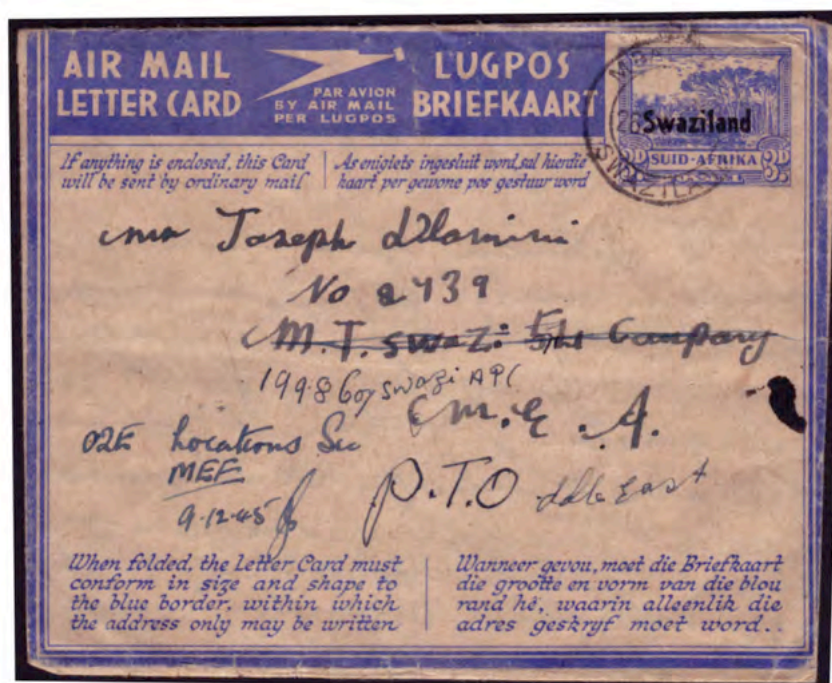 AIR MAIL
LETTER CARD
PAR AVION
BY AIR MAIL
PER LUGPOS
LUGPOS
BRIEFKAART
Swaziland
SUID-AFRIKA
SWAZILA
If anything is enclosed, this Card
will be sent by ordinary mail
As enigiets ingesluit word, sal hierdie
kaart per gewone pos gestuur word
Joseph dlamini
No 2439
M.T. swazi Company
1998 Coy Swazi APC
M.E.A.
02E Locations Sec
MEF
9.12.45
P.T.O ddle East
When folded, the Letter Card must
conform in size and shape to
the blue border, within which
the address only may be written
Wanneer gevou, moet die Briefkaart
die grootte en vorm van die blou
rand hê, waarin alleenlik die
adres geskryf moet word..